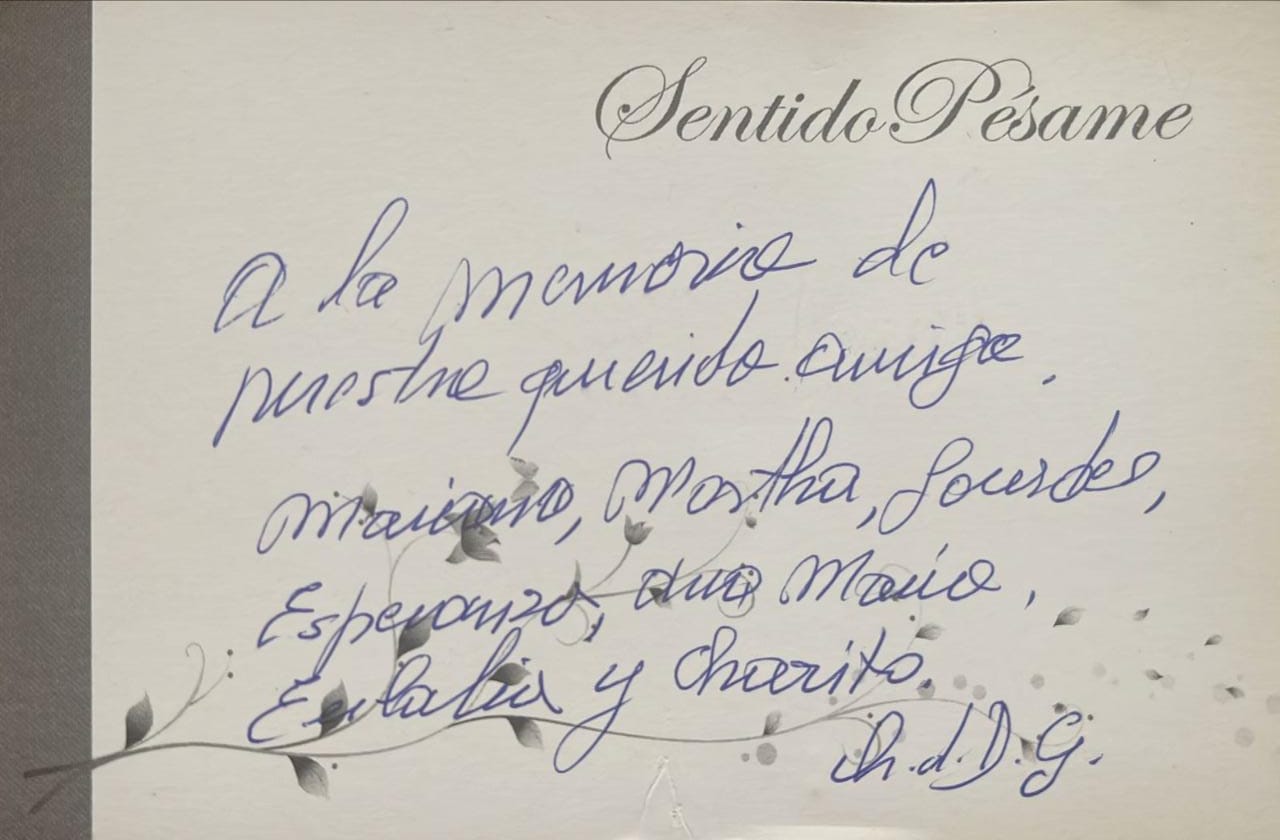 Sentido Pésame
A la memoria de
nuestra querida amiga.
Mariano, Martha, Lourdes,
Esperanza, Ana María,
Eulalia y Charito.
Ch.d.D.G.